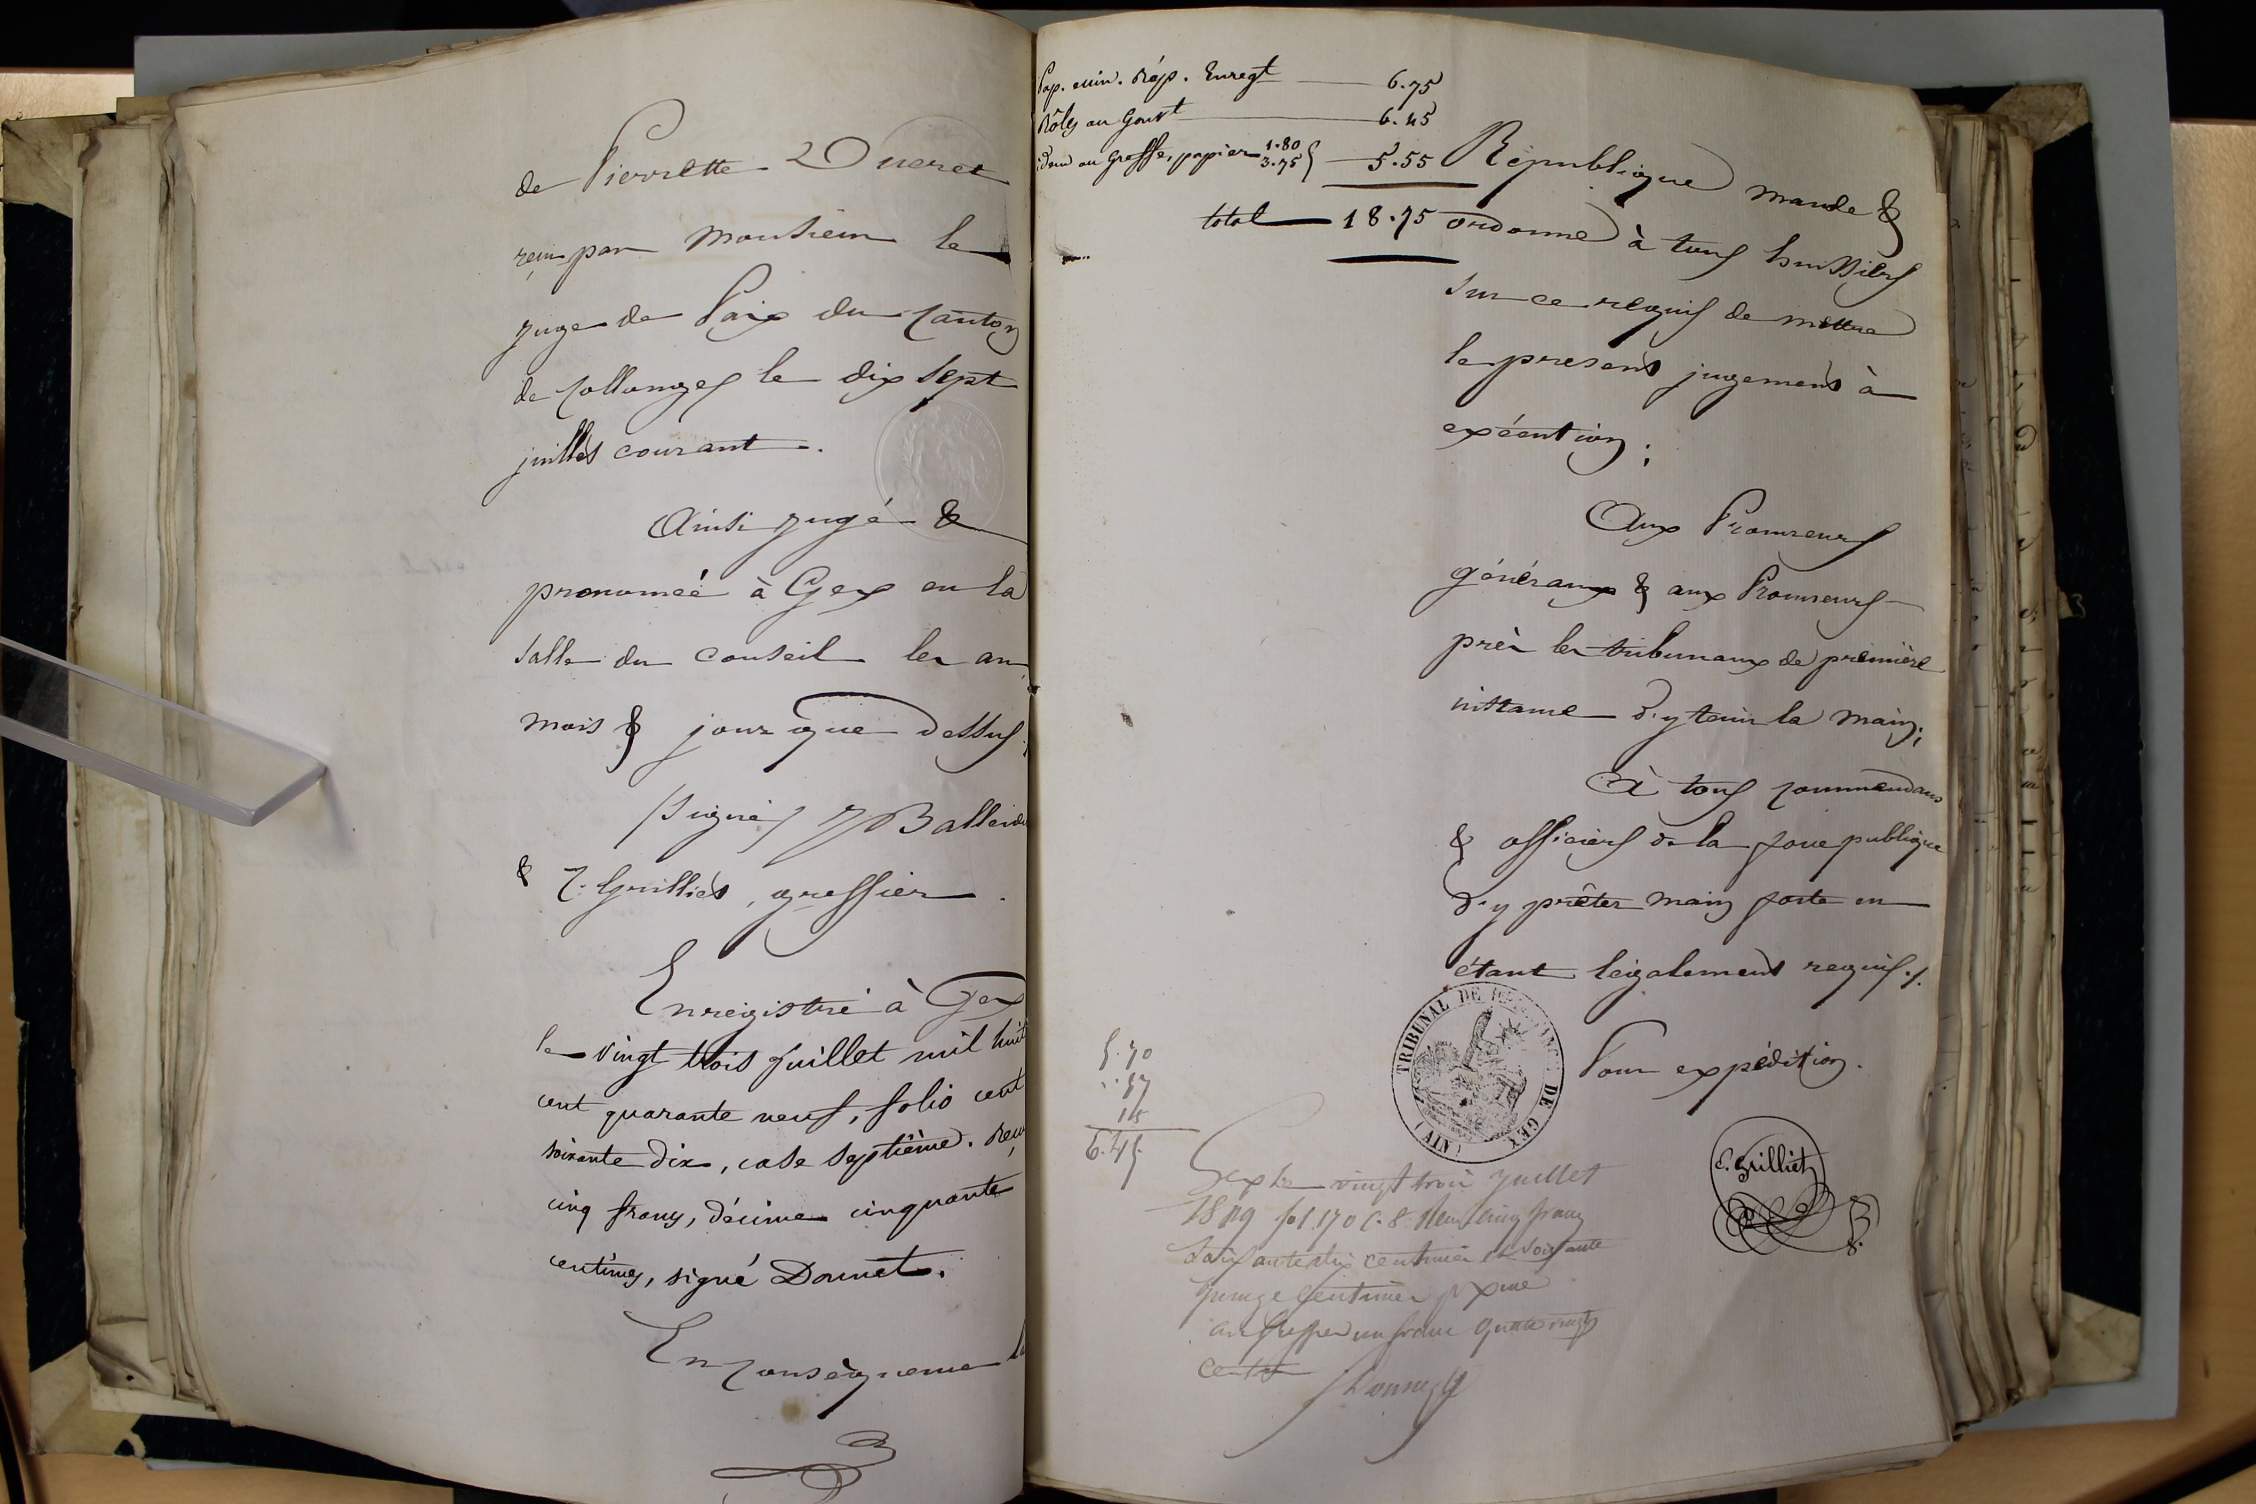 de Pierrette Ducret
reçu par Monsieur le
juge de Paix du Canton
de Collonges le dix sept
juillet courant.
Ainsi jugé &
prononcé à Gex en la
Salle du Conseil les an
mois & jour que dessus;
Signés J Balleidi
& J. Grilliet, greffier.
Enregistré à Gex
le vingt trois Juillet mil huit
cent quarante neuf, folio cent
soixante dix, case septième. Reçu
cinq francs, décime cinquante
centimes, signé Donnet.
En conséquence la
Pap. min. Rép. Enregt 6.75
Rôles au Gouvt 6.45
idem au Greffe, papier 1.80
3.75 } 5.55
total 18.75
République mande &
ordonne à tous huissiers
sur ce requis de mettre
le présent jugement à
exécution;
Aux Procureurs
généraux & aux Procureurs
près les tribunaux de première
instance d'y tenir la main;
À tous Commandans
& officiers de la force publique
d'y prêter main forte en
étant légalement requis./.
TRIBUNAL DE 1ère INSTANCE DE GEX (AIN)
Pour expédition.
5.70
..57
18
6.45
C. Grilliet
Gex le vingt trois Juillet
1849 fol. 170 C. 8 Reçu cinq francs
soixante dix centimes et soixante
quinze centimes pr Xme
au Greffier un franc quatre vingts
centes
Donnet